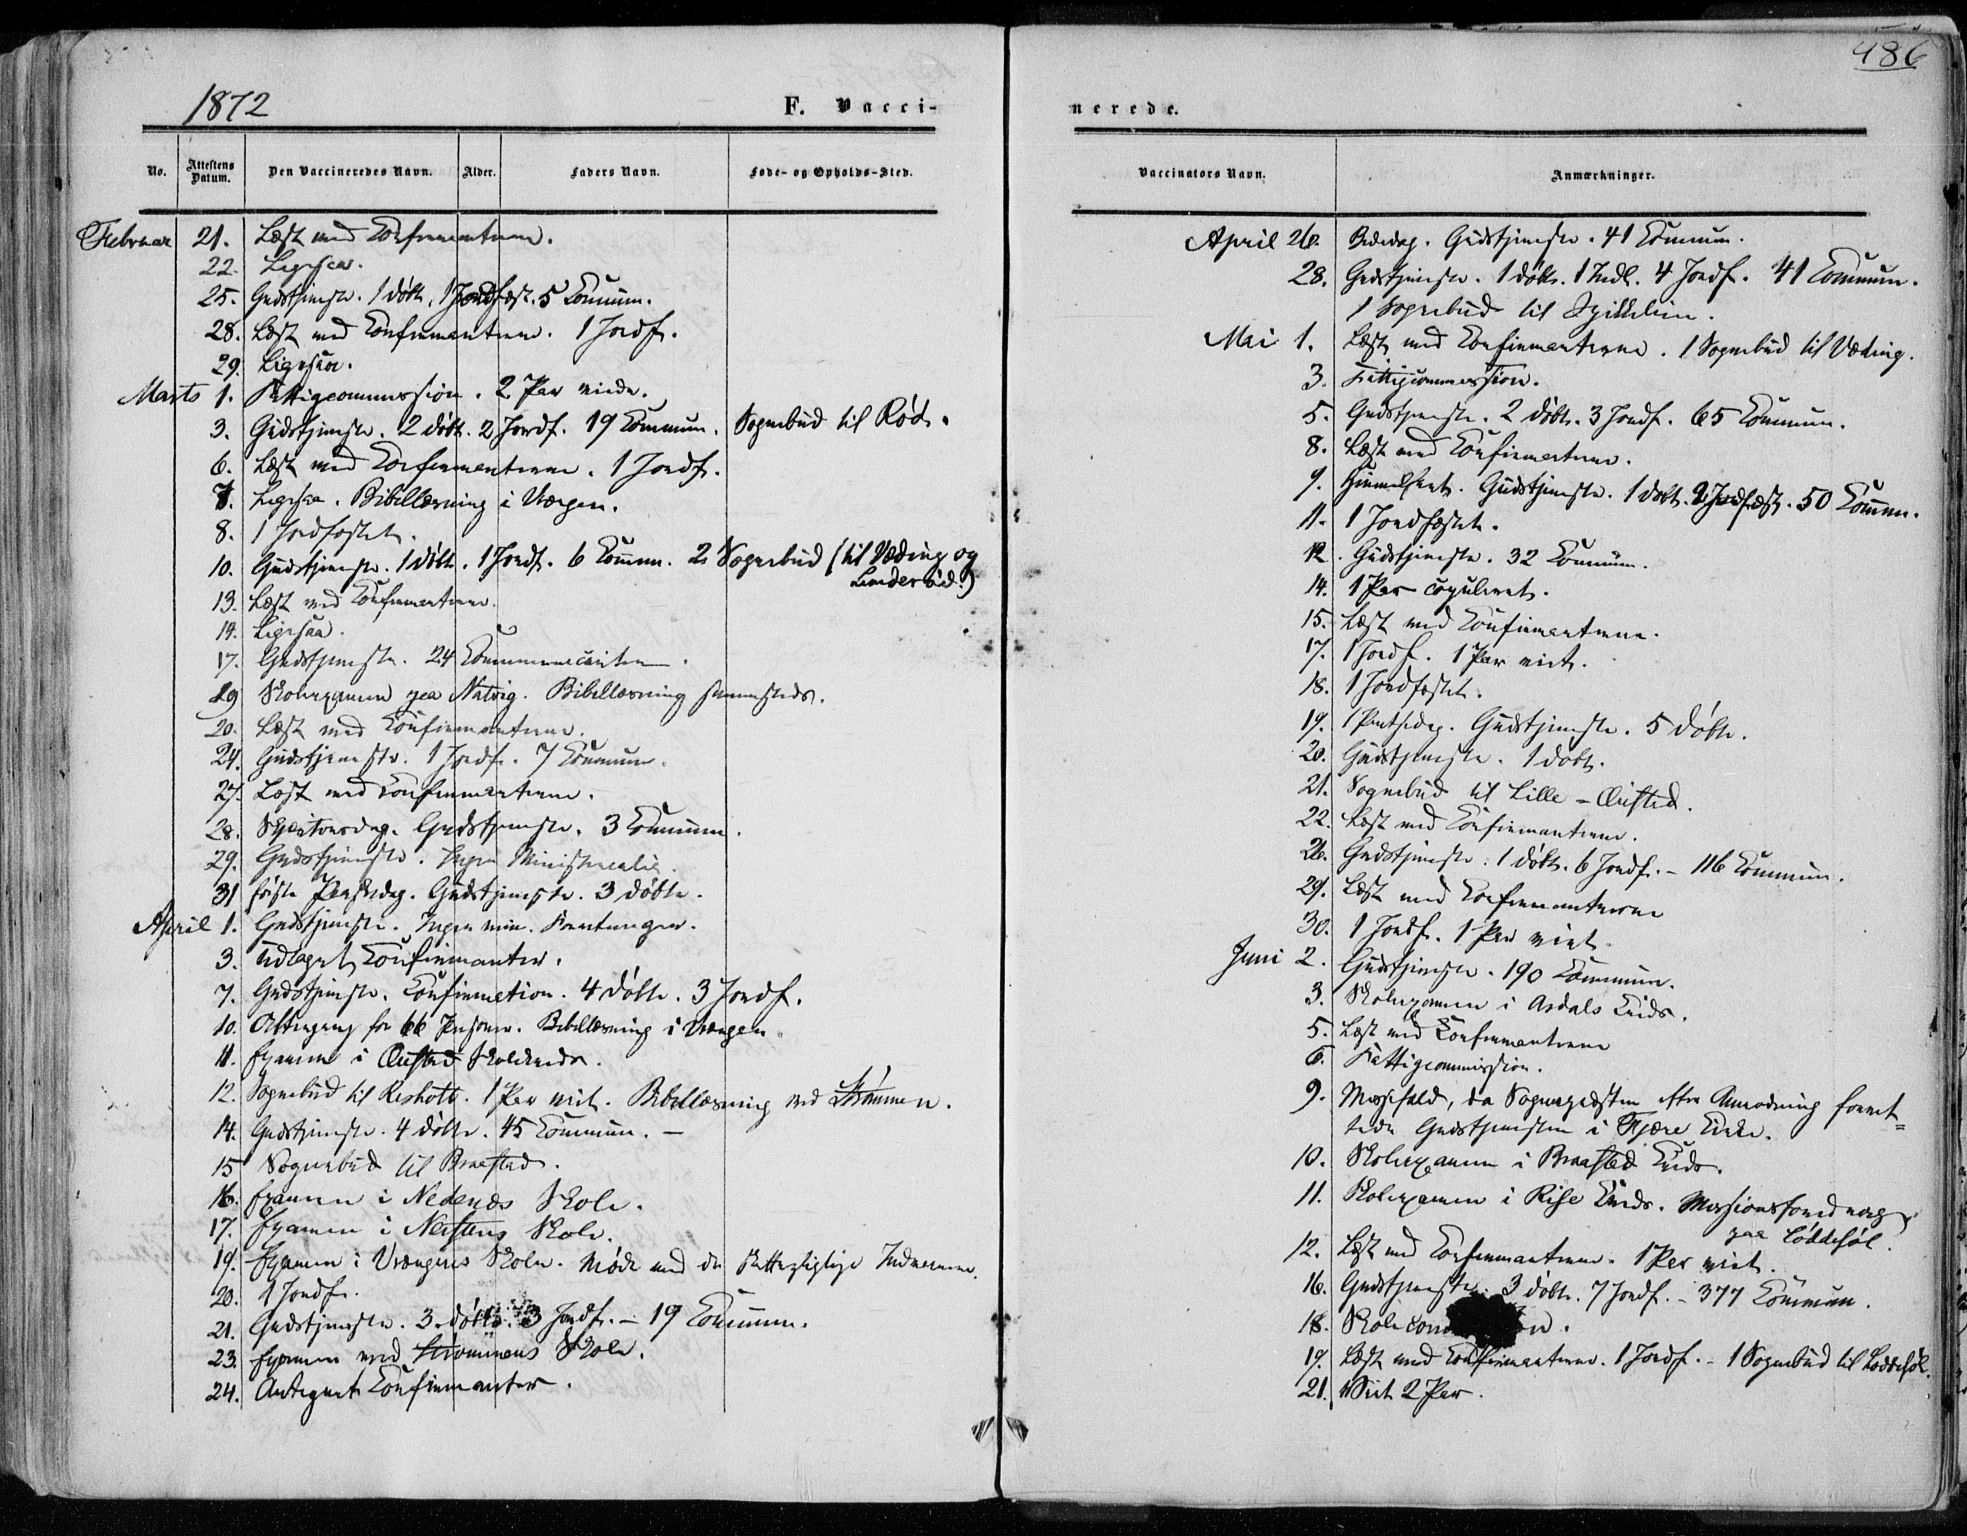 486
1872
F. Vacci-
nerede.
No.
Attestens Datum.
Den Vaccineredes Navn.
Alder.
Faders Navn.
Føde- og Opholds-Sted.
Vaccinators Navn.
Anmærkninger.
Februar 21. Læst med Confirmanterne.
22. Ligesaa.
25. Gudstjeneste. 1 døbt, 1 Jordfæst. 5 Commun.
28. Læst med Confirmanterne. 1 Jordf.
29. Ligesaa.
Marts 1. Fattigcommission. 2 Par viede.
3. Gudstjeneste. 2 døbt. 2 Jordf. 19 Commun. Sognebud til Rød.
6. Læst med Confirmanterne. 1 Jordf.
7. Ligesaa. Bibellæsning i Vrængen.
8. 1 Jordfæstet.
10. Gudstjeneste. 1 døbt. 1 Jordf. 6 Commun. 2 Sognebud (til Væding og
Linderød.)
13. Læst med Confirmanterne.
14. Ligesaa.
17. Gudstjeneste. 24 Communicanter.
19 Skoleexamen paa Natvig. Bibellæsning sammesteds.
20. Læst med Confirmanterne.
24. Gudstjeneste. 1 Jordf. 7 Commun.
27. Læst med Confirmanterne.
28. Skjærtorsdag. Gudstjeneste. 3 Commun.
29. Gudstjeneste. Ingen Ministerialia.
31 første Paaskedag. Gudstjeneste. 3 døbte.
April 1. Gudstjeneste. Ingen min. Forretninger.
3. Udtaget Confirmanter.
7. Gudstjeneste. Confirmation. 4 døbte. 3 Jordf.
10. Altergang for 66 Personer. Bibellæsning i Vrængen.
11. Examen i Øiestad Skolekreds.
12. Sognebud til Resholt. 1 Par viet. Bibellæsning ved Strømmen.
14. Gudstjeneste. 4 døbte. 45 Commun. –
15 Sognebud til Braastad.
16. Examen i Nedenæs Skole.
17. Examen i Nersteens Skole.
19. Examen i Vrængens Skole. Møde med de Indremis.
20. 1 Jordf.
21. Gudstjeneste. 3 døbte. 3 Jordf. – 19 Commun.
23. Examen ved Strømmens Skole.
24. Antegnet Confirmanter.
April 26. Bededag. Gudstjeneste. 41 Commun.
28. Gudstjeneste. 1 døbt. 1 Indl. 4 Jordf. 41 Commun.
1 Sognebud til
Mai 1. Læst med Confirmanterne. 1 Sognebud til Væding.
3. Fattigcommission.
5. Gudstjeneste. 2 døbte. 3 Jordf. 65 Commun.
8. Læst med Confirmanterne.
9. Himmelfart. Gudstjeneste. 1 døbt. 2 Jordfæst. 50 Commun.
11. 1 Jordfæstet.
12. Gudstjeneste. 32 Commun.
14. 1 Par copuleret.
15. Læst med Confirmanterne.
17. 1 Jordf. 1 Par viet.
18. 1 Jordfæstet.
19. 1 Pintsedag. Gudstjeneste. 5 døbte.
20. Gudstjeneste. 1 døbt.
21. Sognebud til Lille-Øiestad.
22. Læst med Confirmanterne.
26. Gudstjeneste. 1 døbt. 6 Jordf. – 116 Commun.
29. Læst med Confirmanterne
30. 1 Jordf. 1 Par viet.
Juni 2. Gudstjeneste. 190 Commun.
3. Skoleexamen i Asdals Kreds.
5. Læst med Confirmanterne
6. Fattigcommission.
9. Messefald, da Sognepræsten efter Anmodning forret-
tede Gudstjenesten i Fjære Kirke.
10. Skoleexamen i Braastad Kreds.
11. Skoleexamen i Rise Kreds. Missionsforedrag
paa Løddesøl.
12. Læst med Confirmanterne. 1 Par viet.
16. Gudstjeneste. 3 døbte. 7 Jordf. – 377 Commun.
18. Skolecommission.
19. Læst med Confirmanterne. 1 Jordf. – 1 Sognebud til Løddesøl.
21. Viet 2 Par.